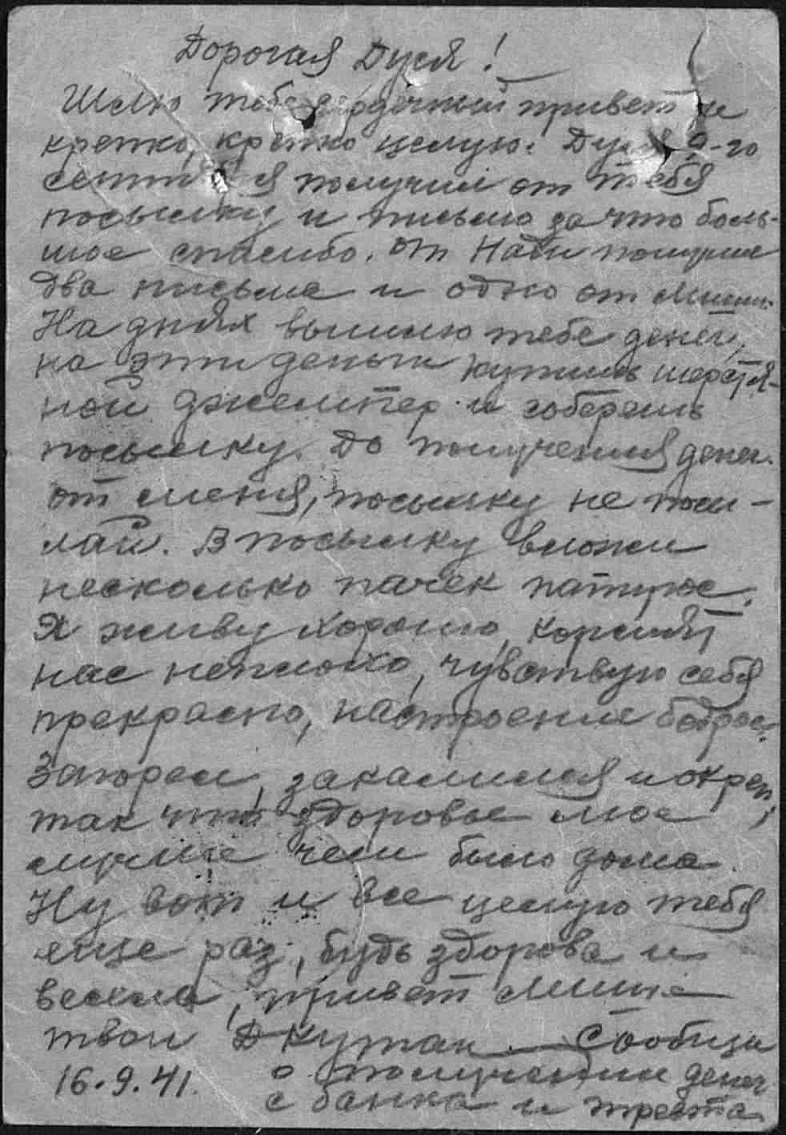 Дорогая Дуся!
Шлю тебе сердечный привет и
крепко, крепко целую. Дуся -го
сентября получил от тебя
посылку и письмо за что боль-
шое спасибо. От Нади получил
два письма и одно от Миши.
На днях вышлю тебе денег,
на эти деньги купишь шерстя-
ной джемпер и соберешь
посылку. До получения денег
от меня, посылку не посы-
лай. В посылку вложи
несколько пачек папирос.
Я живу хорошо, кормят
нас неплохо, чувствую себя
прекрасно, настроение бодрое.
Загорел, закалился и окреп,
так что здоровье мое
лучше чем было дома.
Ну вот и все целую тебя
еще раз, будь здорова и
весела, привет Мише
твой Д
Сообщи
16.9.41. о получении денег
с банка и треста.